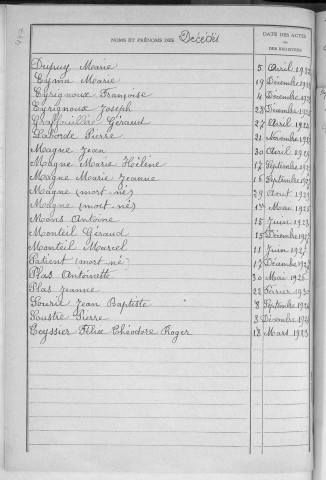 NOMS ET PRÉNOMS DES Décédés
DATE DES ACTES
OU
DES REGISTRES
Dupuy Marie 5 Avril
Eymà Marie 19 Décembre
Eyrignoux Françoise 4 Décembre
Eyrignoux Joseph 28 Décembre
Géraud 27 Avril
Laborde Pierre 21 Novembre
Magne Jean 30 Avril
Magne Marie Hélène 17 Septembre
Magne Marie Jeanne 15 Septembre
Magne (mort-né) 29 Août
Magne (mort-né) Mai
Moins Antoine 15 Juin
Monteil Géraud 15 Décembre
Monteil Marcel 11 Juin
Patient (mort-né) 17 Décembre
Plas Antoinette 30 Mai 1926
Plas Jeanne 22 Février 1930
Sourie Jean Baptiste 8 Septembre
Soustre Pierre 3 Décembre
Teyssier Félix Théodore Roger 18 Mars 1923